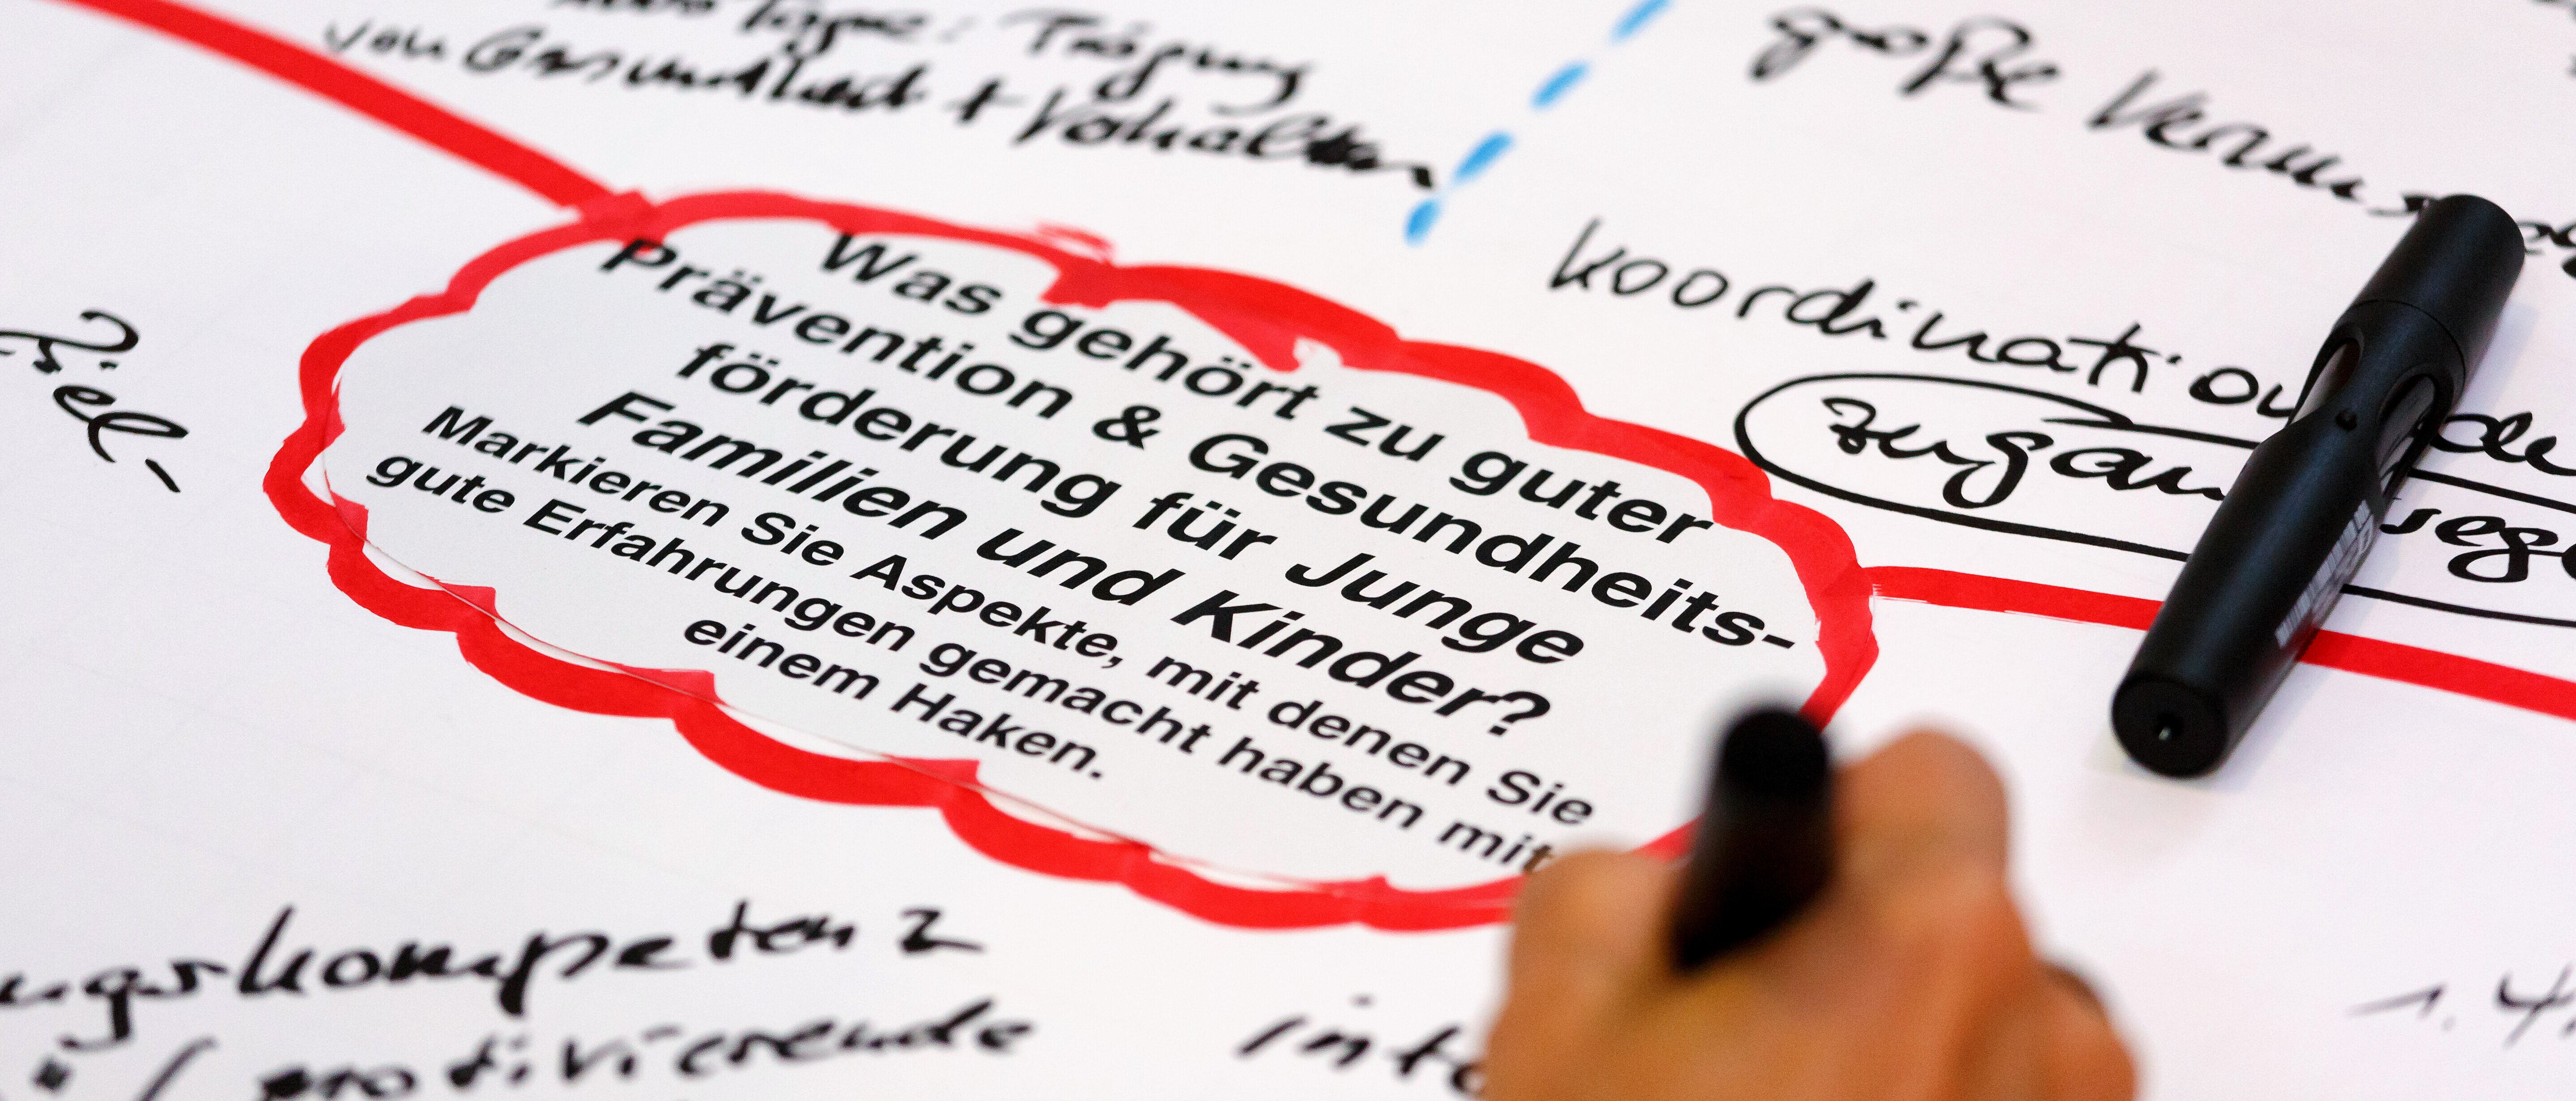 Tage: Prägung
von Gesundheit + Verhalten
große
Koordination de
Zugan
Ziel-
Was gehört zu guter
Prävention & Gesundheits-
förderung für Junge
Familien und Kinder?
Markieren Sie Aspekte, mit denen Sie
gute Erfahrungen gemacht haben mit
einem Haken.
ungskompetenz
motivierende
inte
1.